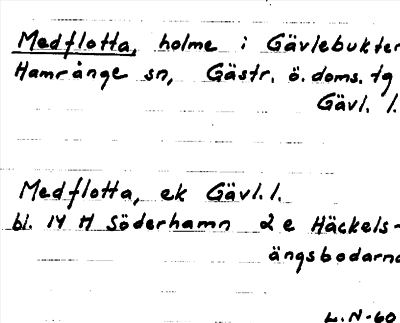 Medflotta, holme i Gävlebukten
Hamrånge sn, Gästr. ö. doms. tg
Gävl. l.
Medflotta, ek Gävl. l.
bl. 14 H Söderhamn 2 e Häckels-
ängsbodarna
L.N-60